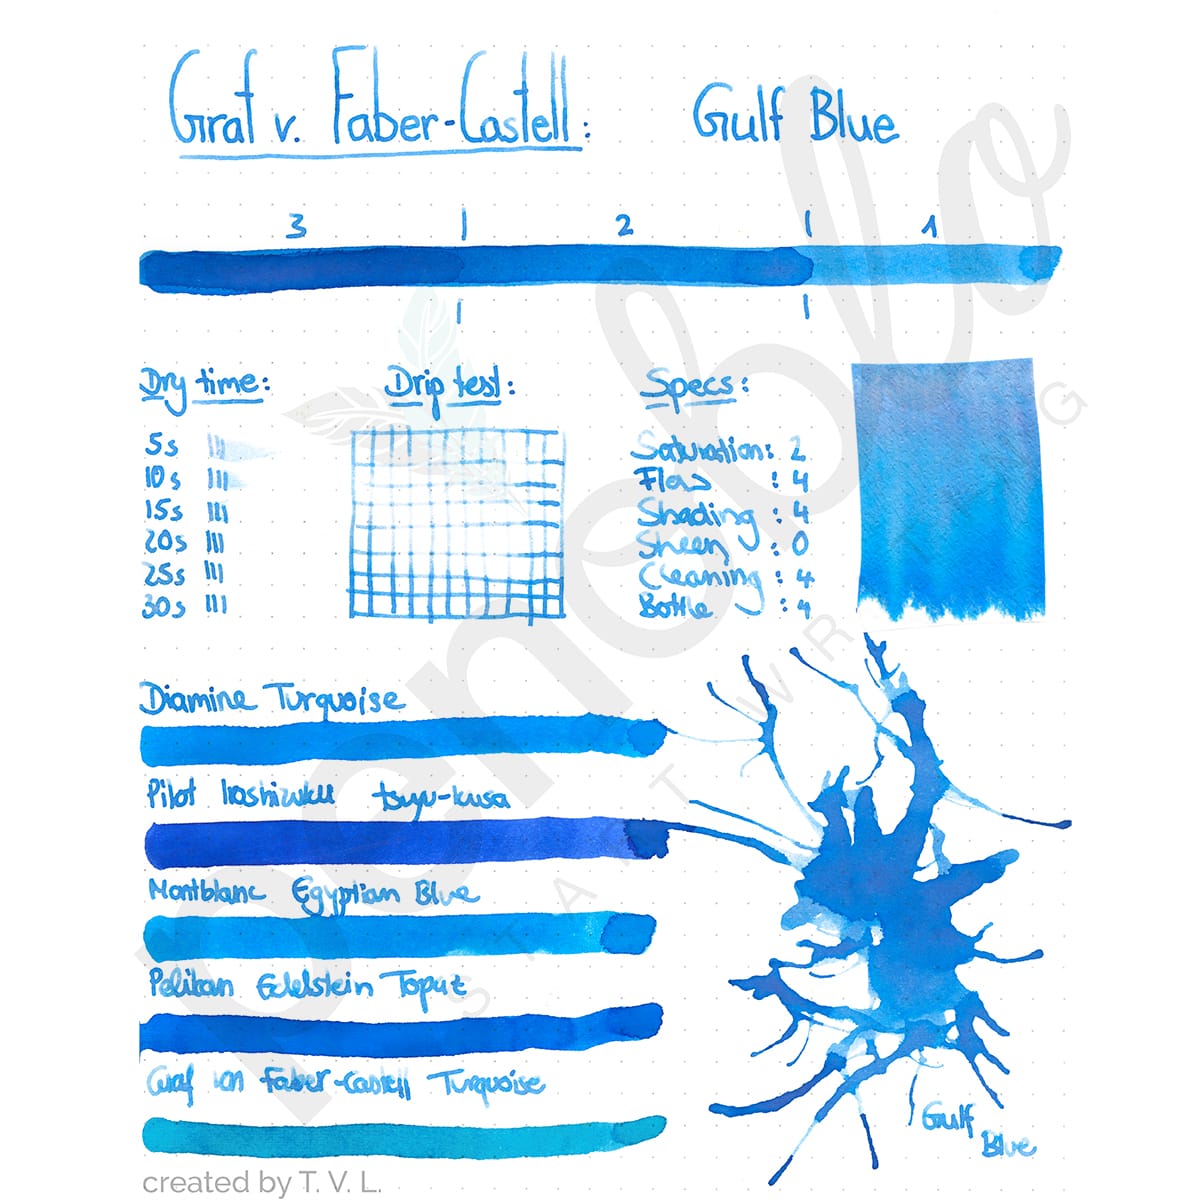 Graf v. Faber-Castell: Gulf Blue
3 2 1
Dry time:
5s
10s
15s
20s
25s
30s
Drip test:
Specs:
Saturation: 2
Flow : 4
Shading : 4
Sheen : 0
Cleaning : 4
Bottle : 4
Diamine Turquoise
Pilot Iroshizuku tsuyu-kusa
Montblanc Egyptian Blue
Pelikan Edelstein Topaz
Graf von Faber-Castell Turquoise
Gulf
Blue
penoblo
START WRITING
created by T. V. L.